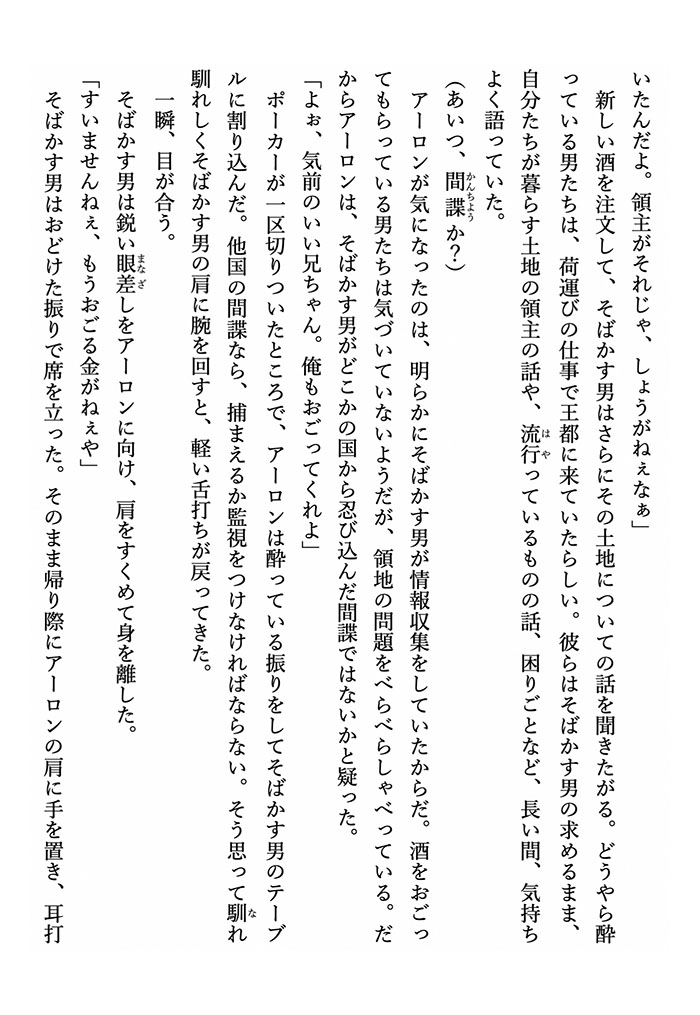 いたんだよ。領主がそれじゃ、しょうがねぇなぁ」
　新しい酒を注文して、そばかす男はさらにその土地についての話を聞きたがる。どうやら酔
っている男たちは、荷運びの仕事で王都に来ていたらしい。彼らはそばかす男の求めるまま、
自分たちが暮らす土地の領主の話や、流行っているものの話、困りごとなど、長い間、気持ち
よく語っていた。
（あいつ、間諜か？）
　アーロンが気になったのは、明らかにそばかす男が情報収集をしていたからだ。酒をおごっ
てもらっている男たちは気づいていないようだが、領地の問題をべらべらしゃべっている。だ
からアーロンは、そばかす男がどこかの国から忍び込んだ間諜ではないかと疑った。
「よぉ、気前のいい兄ちゃん。俺もおごってくれよ」
　ポーカーが一区切りついたところで、アーロンは酔っている振りをしてそばかす男のテーブ
ルに割り込んだ。他国の間諜なら、捕まえるか監視をつけなければならない。そう思って馴れ
馴れしくそばかす男の肩に腕を回すと、軽い舌打ちが戻ってきた。
　一瞬、目が合う。
　そばかす男は鋭い眼差しをアーロンに向け、肩をすくめて身を離した。
「すいませんねぇ、もうおごる金がねぇや」
　そばかす男はおどけた振りで席を立った。そのまま帰り際にアーロンの肩に手を置き、耳打